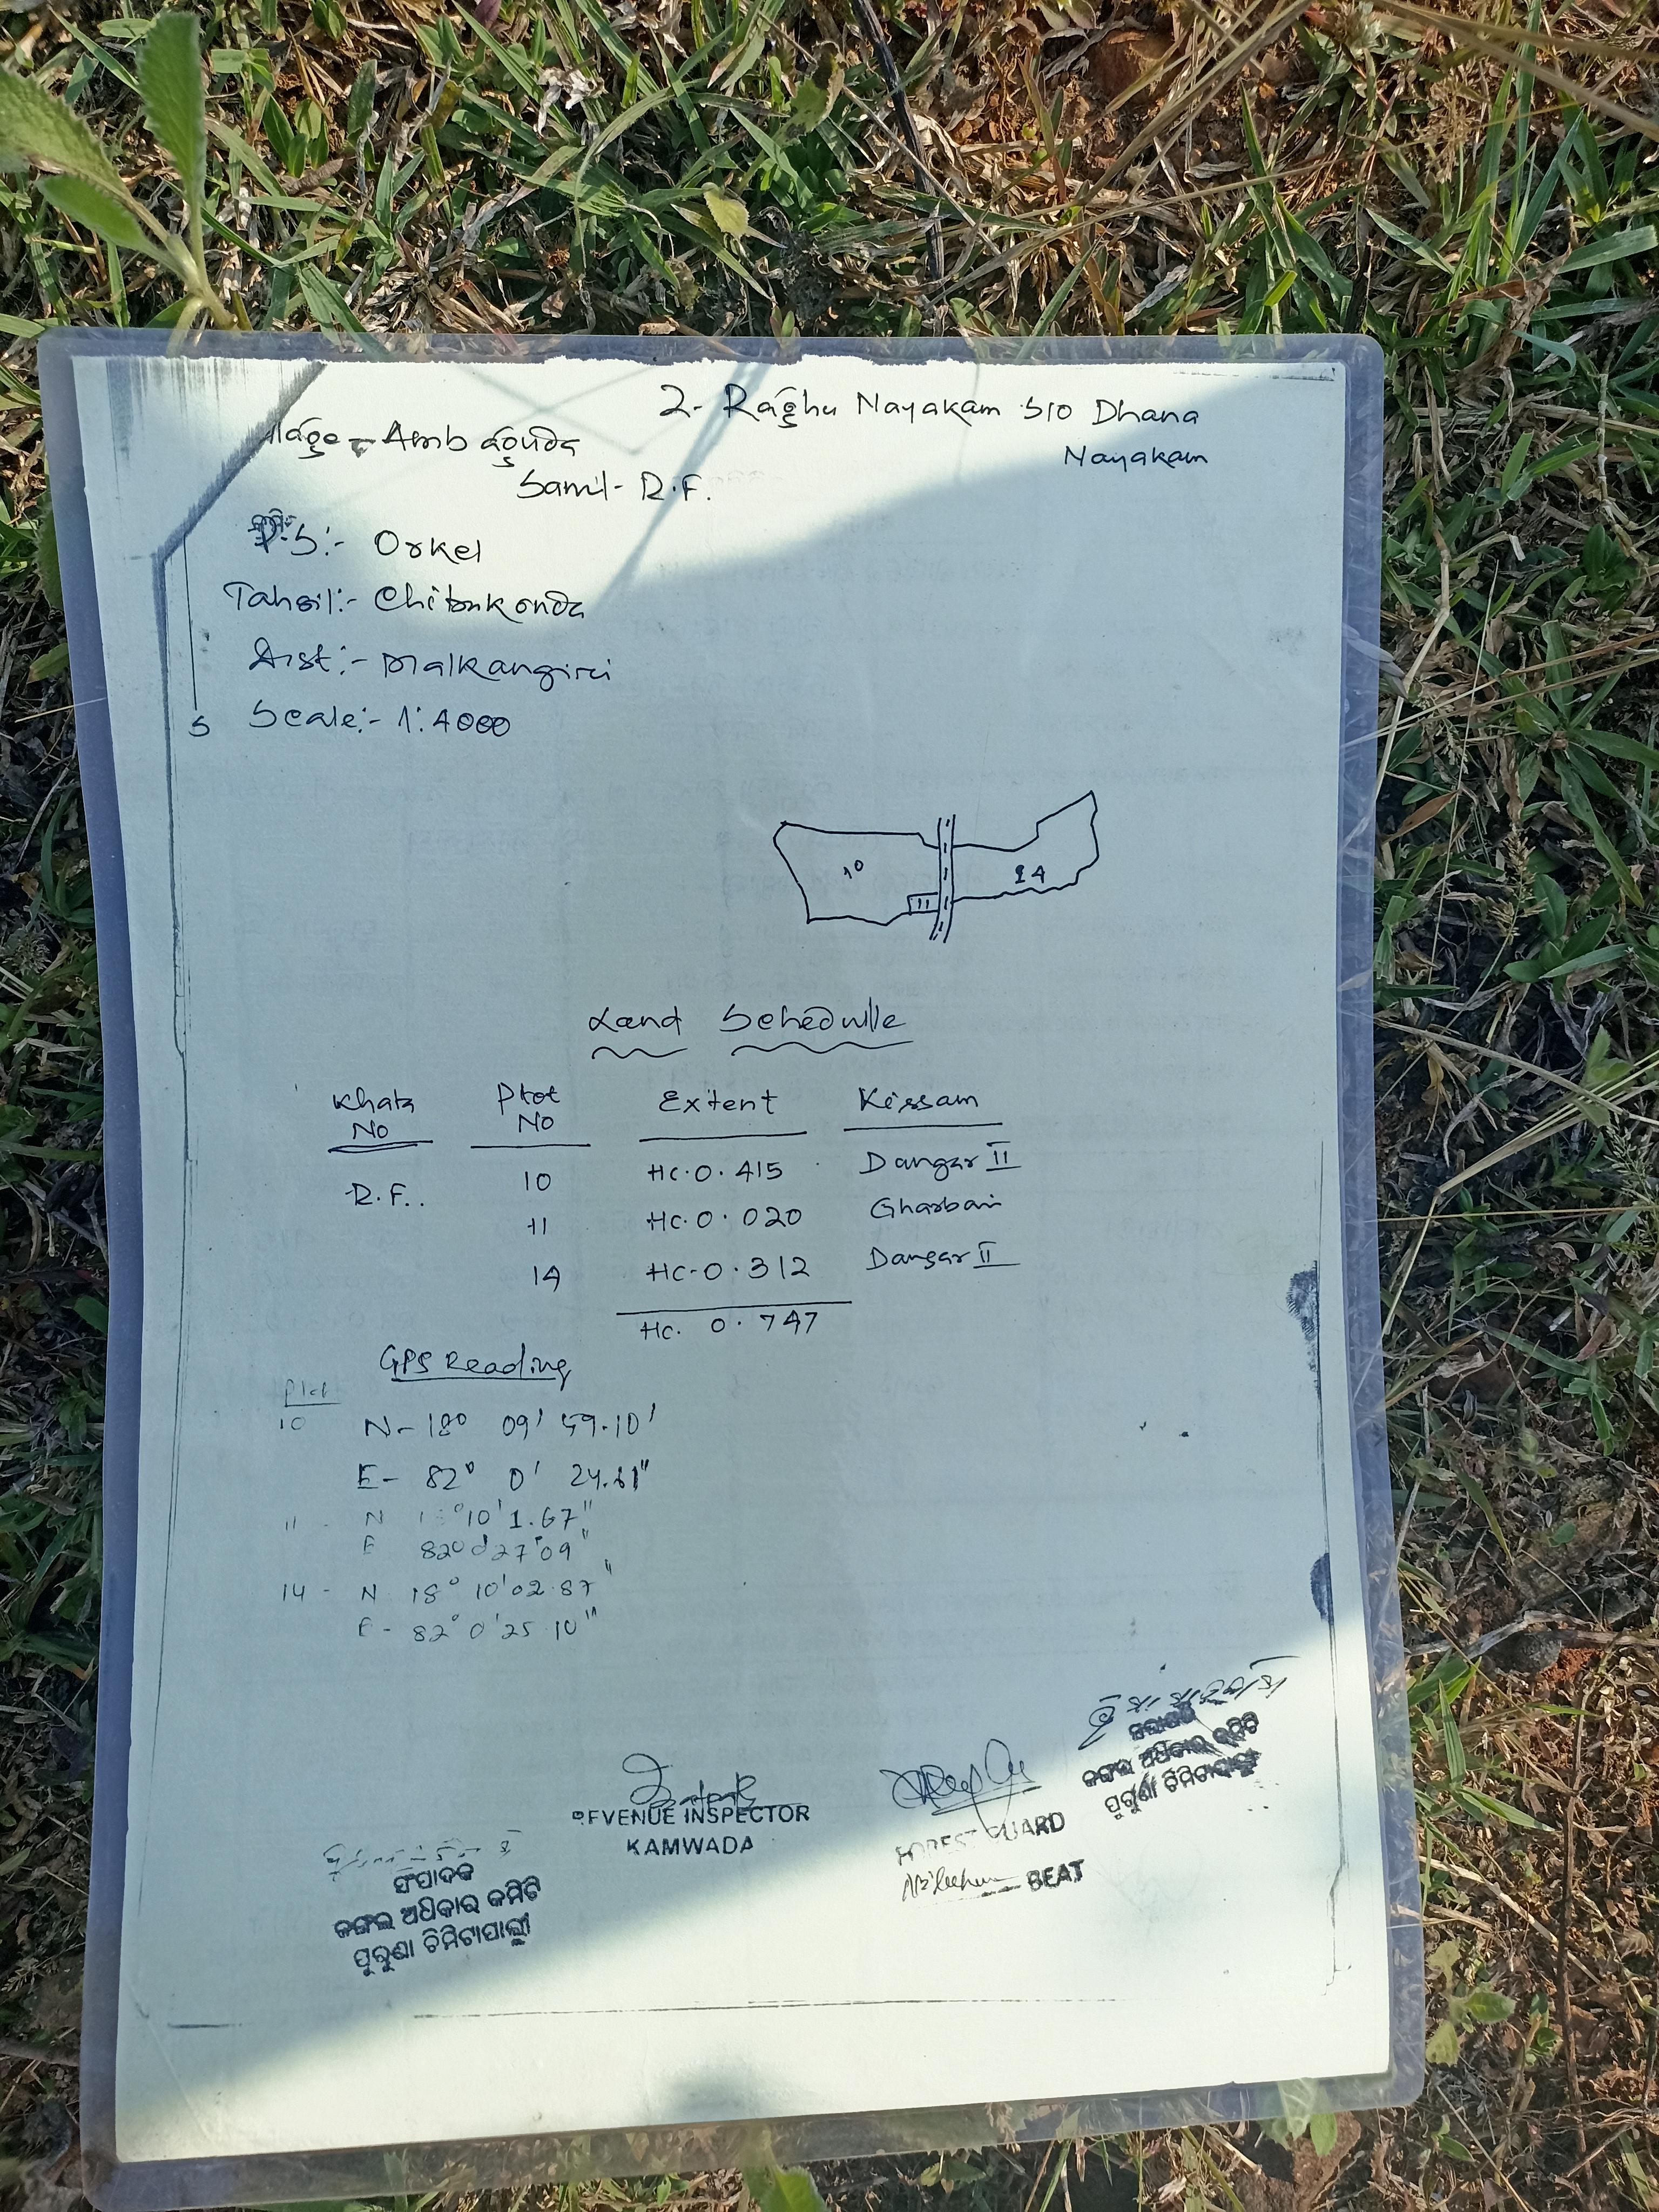 2- Raghu Nayakam S/O Dhana
Nayakam
llage - Ambaguda
Samil- R.F.
P.S:- Orkel
Tahsil:- Chitrakonda
Dist:- Malkangiri
S
Scale:- 1:4000
10
11
14
Land Schedulle
Khata No
Plot No
Extent
Kissam
R.F.. 10 HC.0.415 Dangar II
11 HC.0.020 Gharbari
14 HC-0.312 Dangar II
HC. 0.747
GPS Reading
Plot
10 N- 18° 09' 59.10'
E- 82° 0' 24.61"
11 - N 10' 1.67"
E 82° 0' 27.09"
14 - N 18° 10' 02.87"
E- 82° 0' 25.10"
REVENUE INSPECTOR
KAMWADA
FOREST GUARD
BEAT
ସଭାପତି
ଜଙ୍ଗଲ ଅଧିକାର କମିଟି
ପୁରୁଣା ଚିମିଟାପାଲ୍ଲୀ
ସଂପାଦକ
ଜଙ୍ଗଲ ଅଧିକାର କମିଟି
ପୁରୁଣା ଚିମିଟାପାଲ୍ଲୀ